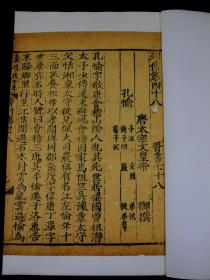 列傳第四十八 晉書七十八
唐太宗文皇帝 御撰
孔愉 子汪 安國 弟祗
從子坦 嚴 從弟羣
羣子沈
孔愉字敬康會稽山陰人也其先世居梁國曾祖潛
太子少傅漢末避地會稽因家焉祖竺吳豫章太守
父恬湘東太守從兄侃俱有名江左愉年十
三而孤養祖母以孝聞與同郡張茂字偉康丁潭字
世康齊名時人號曰會稽三康吳平愉遷于洛惠帝
末歸鄉里行至江淮間遇石冰封雲為亂雲逼愉為